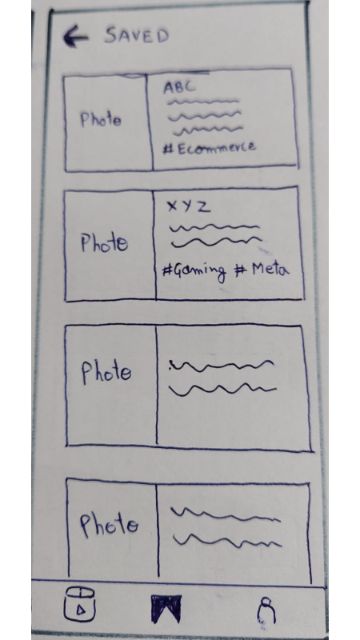 SAVED
Photo
ABC
#Ecommerce
Photo
XYZ
#Gaming # Meta
Photo
Photo